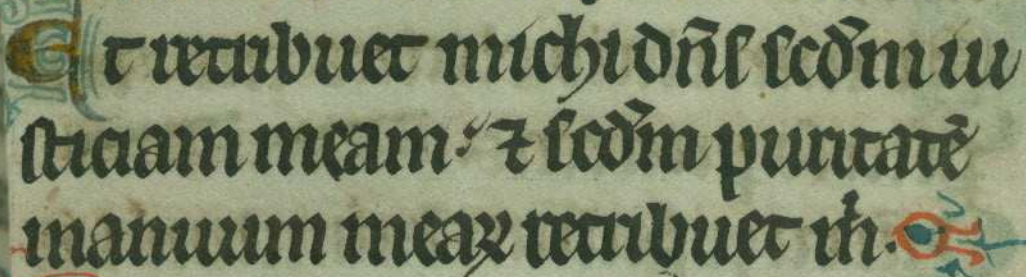 Et retribuet michi dn̄s scd̄m iu
sticiam meam: ⁊ scd̄m puritatē
manuum meaꝝ retribuet m̄.